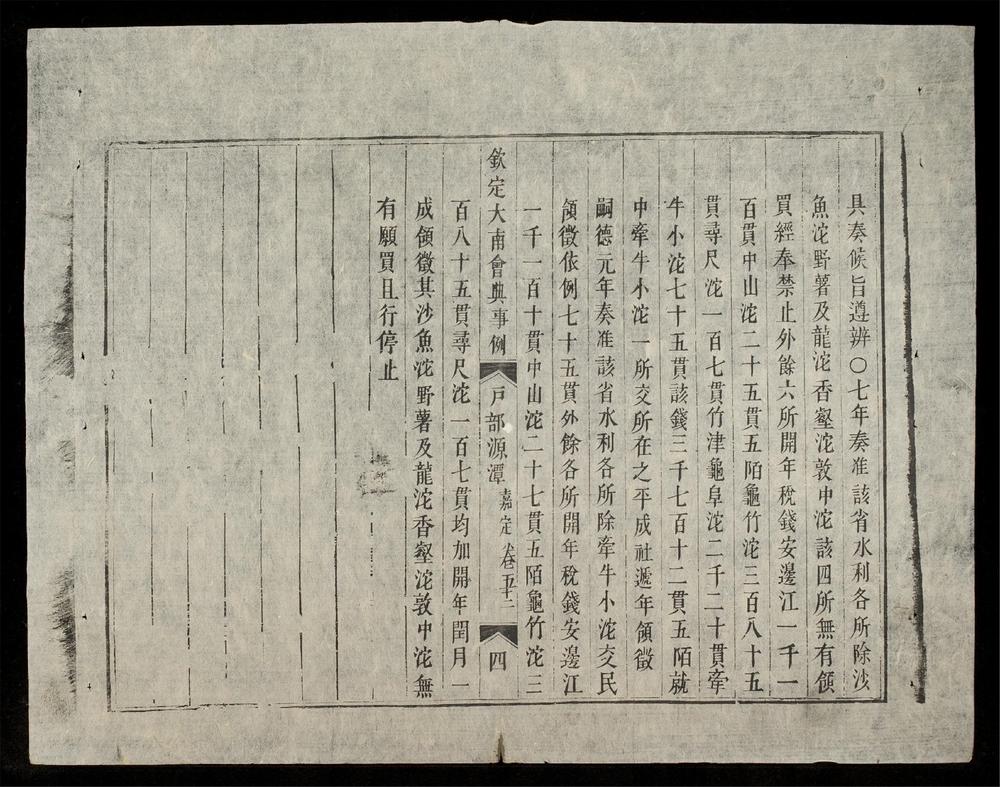 具奏候旨遵辨○七年奏准該省水利各所除沙
魚沱野薯及龍沱香壑沱敦中沱該四所無有領
買經奉禁止外餘六所開年稅錢安邊江一千一
百貫中山沱二十五貫五陌龜竹沱三百八十五
貫尋尺沱一百七貫竹津龜阜沱二千二十貫牽
牛小沱七十五貫該錢三千七百十二貫五陌就
中牽牛小沱一所交所在之平成社遞年領徵
嗣德元年奏准該省水利各所除牽牛小沱交民
領徵依例七十五貫外餘各所開年稅錢安邊江
一千一百十貫中山沱二十七貫五陌龜竹沱三
欽定大南會典事例 戶部源潭 嘉定 卷五十二 四
百八十五貫尋尺沱一百七貫均加開年閏月一
成領徵其沙魚沱野薯及龍沱香壑沱敦中沱無
有願買且行停止